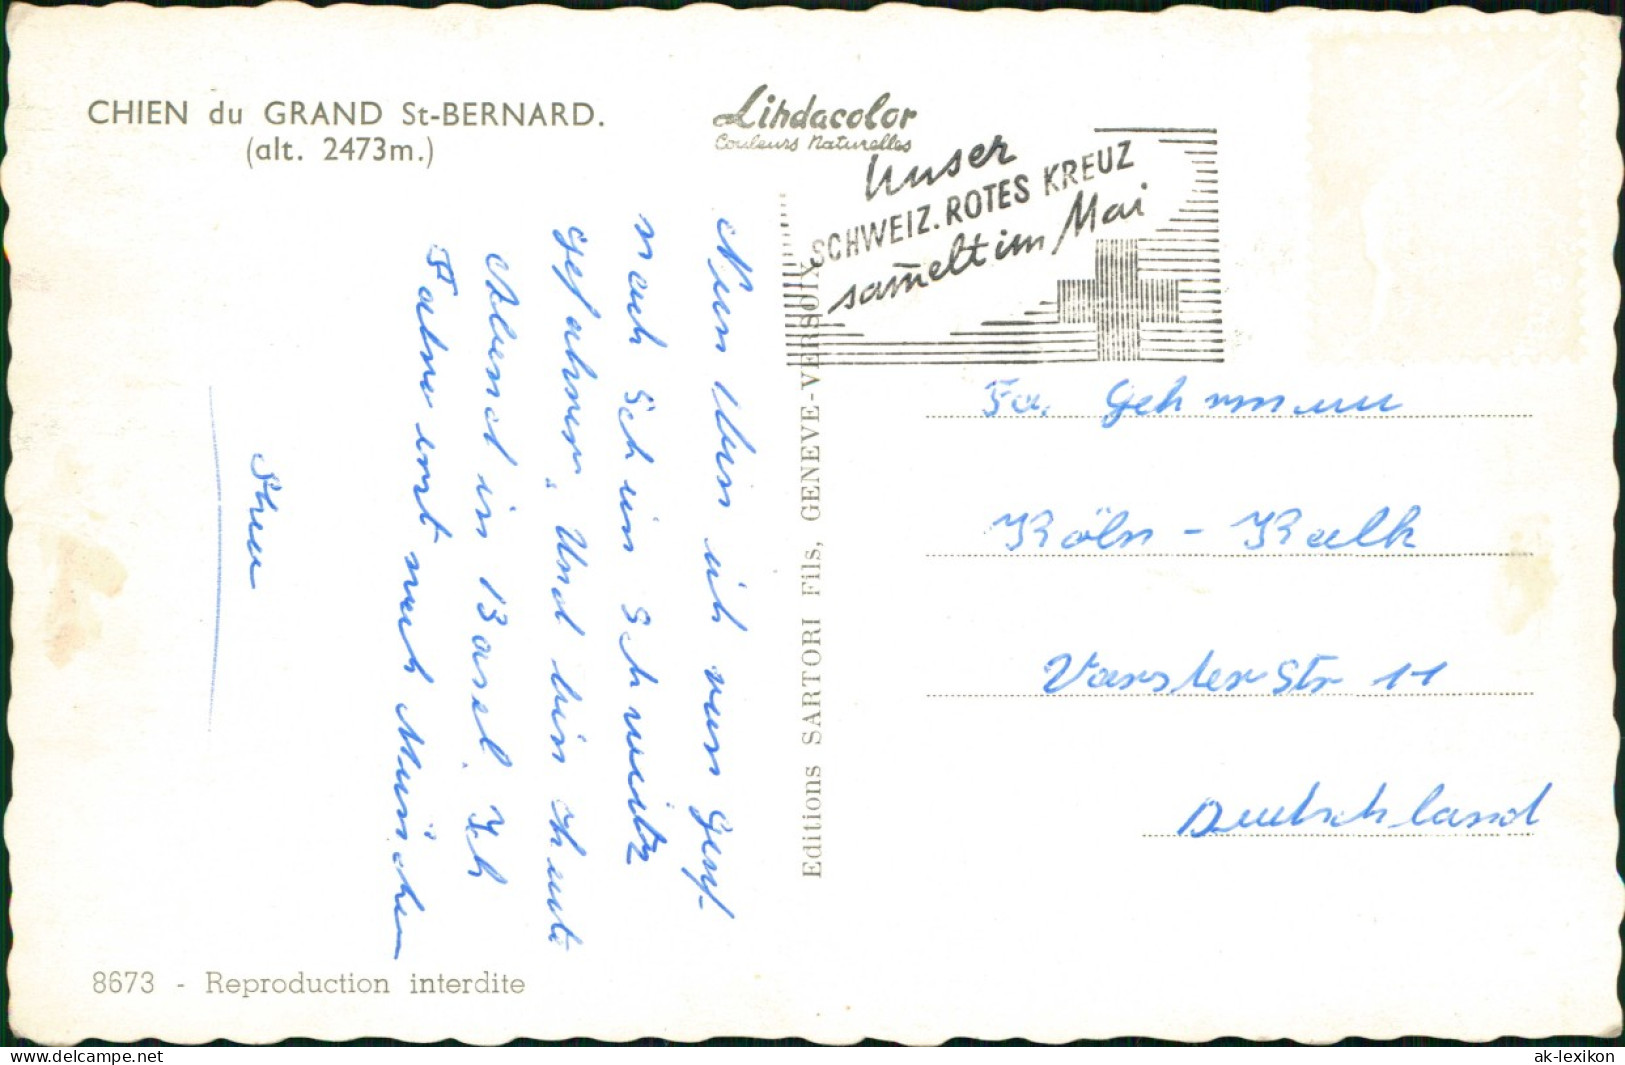 CHIEN du GRAND St-BERNARD.
(alt. 2473m.)
Lindacolor
Couleurs Naturelles
Unser
SCHWEIZ. ROTES KREUZ
sam̄elt im Mai
Nun bin ich von Genf
nach Schim Schweitz
gefahren. Und bin Heute
Abend in Basel. Ich
Fahre mit nach München
Editions SARTORI Fils, GENEVE-VERSOIX
Fa. Gehrmann
Köln - Kalk
Vorster Str 11
Deutschland
8673 - Reproduction interdite
delcampe.net
ak-lexikon